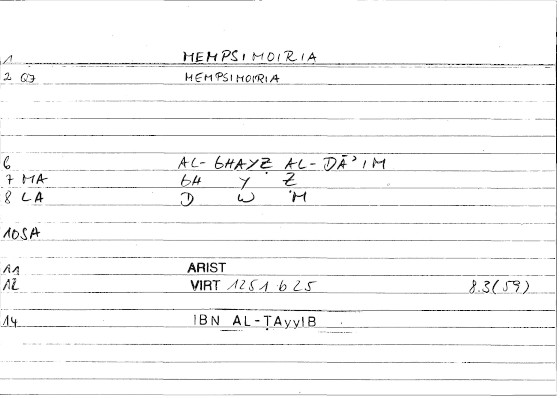 1 MEMPSIMOIRIA
2 Q7 MEMPSIMOIRIA
6 AL-GHAYẒ AL-DĀʾIM
7 MA GH Y Ẓ
8 LA D W M
10SA
11 ARIST
12 VIRT 1251 b 25 8.3(59)
14 IBN AL-ṬAyyIB